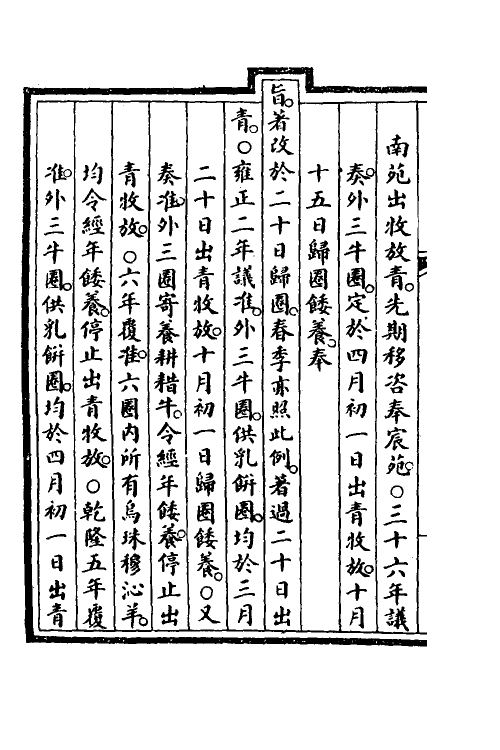 南苑出牧放青。先期移咨奉宸苑。○三十六年議
奏。外三牛圈。定於四月初一日出青牧放。十月
十五日歸圈餧養。奉
旨。著改於二十日歸圈。春季亦照此例。著過二十日出
青。○雍正二年議准。外三牛圈。供乳餅圈。均於三月
二十日出青牧放。十月初一日歸圈餧養。○又
奏准。外三圈寄養耕耤牛。令經年餧養。停止出
青牧放。○六年覆准。六圈內所有烏珠穆沁羊。
均令經年餧養。停止出青牧放。○乾隆五年覆
准。外三牛圈。供乳餅圈。均於四月初一日出青